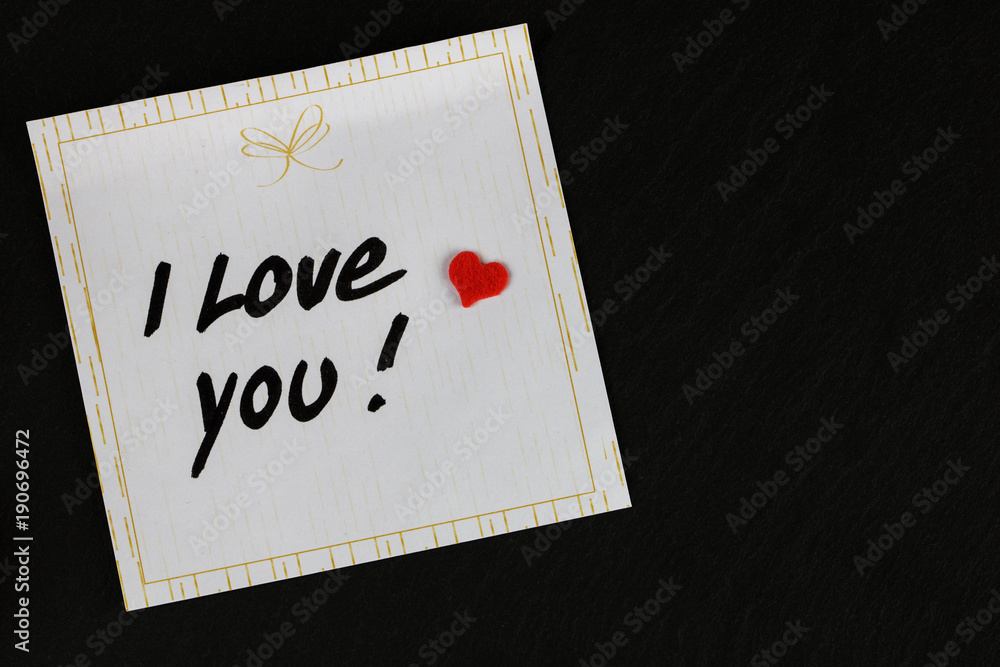 I Love
you!
Adobe Stock | #190696472